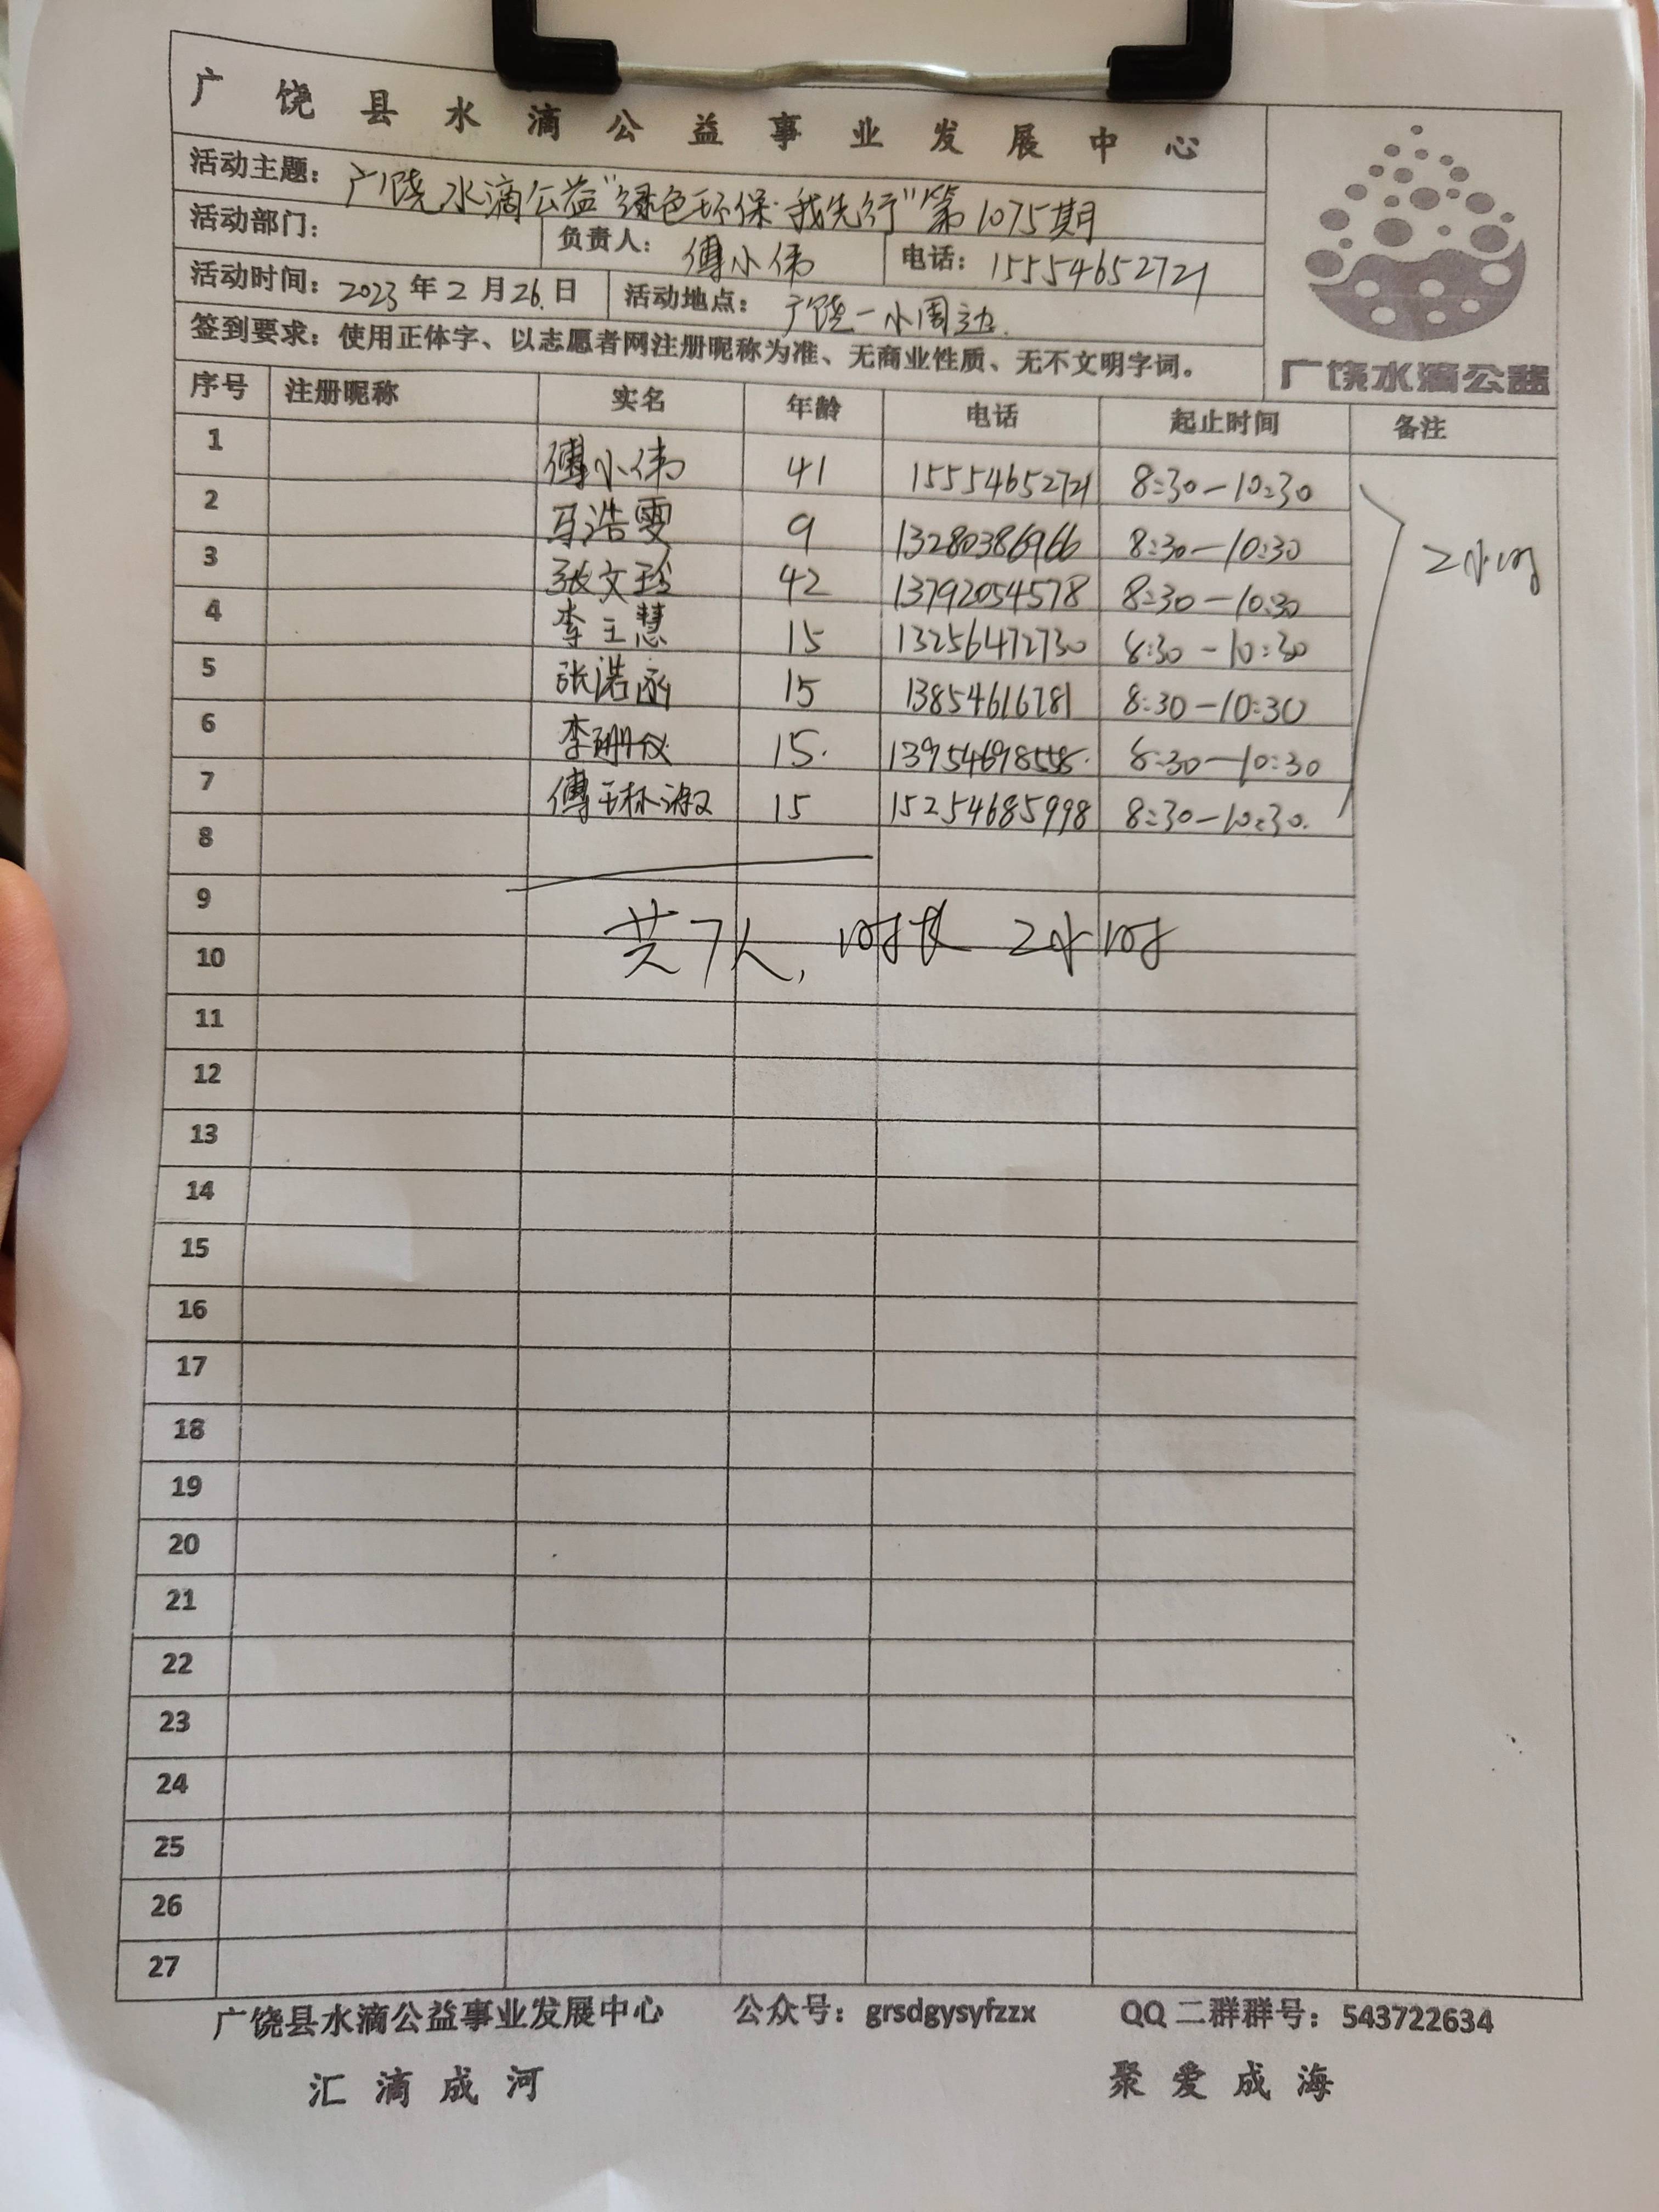 广饶县水滴公益事业发展中心
活动主题：广饶水滴公益"绿色环保·我先行"第1075期
活动部门： 负责人：傅小伟 电话：15554652721
活动时间：2023年2月26.日 活动地点：广饶一小周边.
签到要求：使用正体字、以志愿者网注册昵称为准、无商业性质、无不文明字词。
广饶水滴公益
序号 注册昵称 实名 年龄 电话 起止时间 备注
1 傅小伟 41 15554652721 8:30-10:30
2 马浩雯 9 13280386966 8:30-10:30
2小时
3 张文珍 42 13792054578 8:30-10:30
4 李玉慧 15 13256472730 8:30-10:30
5 张浩函 15 13854616781 8:30-10:30
6 李珊仪 15. 8:30-10:30
7 傅琳淑 15 15254685998 8:30-10:30.
8
9
共7人,时长2小时
10
11
12
13
14
15
16
17
18
19
20
21
22
23
24
25
26
27
广饶县水滴公益事业发展中心 公众号：grsdgysyfzzx QQ二群群号：543722634
汇滴成河 聚爱成海